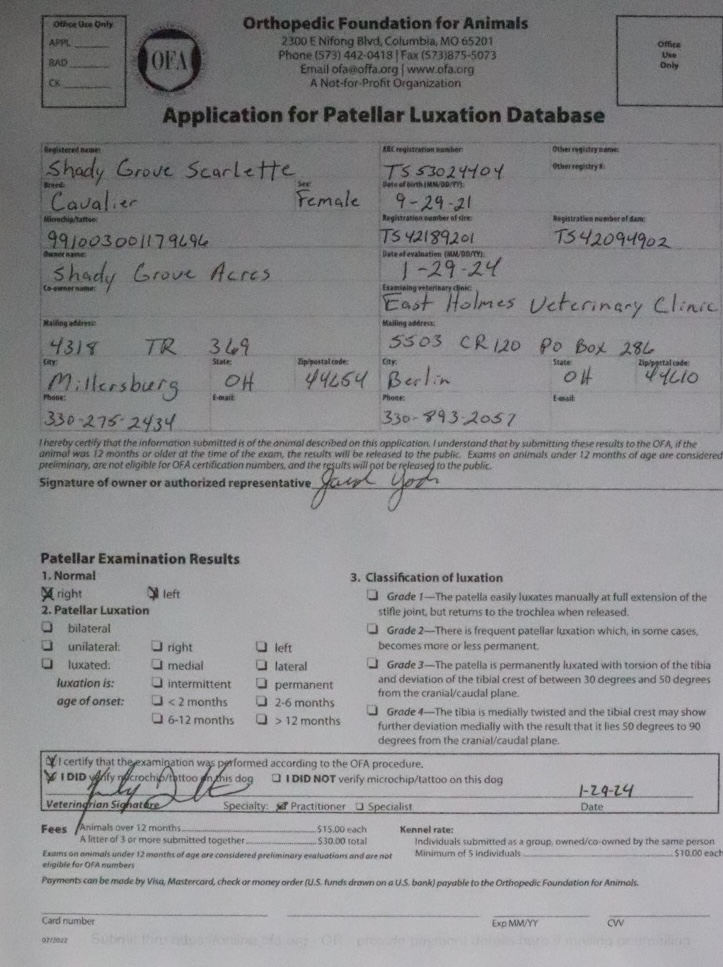 Office Use Only
APPL
RAD
CK
OFA
Orthopedic Foundation for Animals
2300 E Nifong Blvd, Columbia, MO 65201
Phone (573) 442-0418 | Fax (573)875-5073
Email ofa@offa.org | www.ofa.org
A Not-for-Profit Organization
Office
Use
Only
Application for Patellar Luxation Database
Registered name: AKC registration number: Other registry name:
Shady Grove Scarlette TS53024404 Other registry #:
Breed: Sex: Date of birth (MM/DD/YY):
Cavalier Female 9-29-21
Microchip/tattoo: Registration number of sire: Registration number of dam:
991003001179696 TS42189201 TS42094902
Owner name: Date of evaluation (MM/DD/YY):
Shady Grove Acres 1-29-24
Co-owner name: Examining veterinary clinic:
East Holmes Veterinary Clinic
Mailing address: Mailing address:
4318 TR 369 5503 CR 120 PO Box 286
City: State: Zip/postal code: City: State: Zip/postal code:
Millersburg OH 44654 Berlin OH 44610
Phone: E-mail: Phone: E-mail:
330-275-2434 330-893-2057
I hereby certify that the information submitted is of the animal described on this application. I understand that by submitting these results to the OFA, if the
animal was 12 months or older at the time of the exam, the results will be released to the public. Exams on animals under 12 months of age are considered
preliminary, are not eligible for OFA certification numbers, and the results will not be released to the public.
Signature of owner or authorized representative
Patellar Examination Results
1. Normal
right left
2. Patellar Luxation
bilateral
unilateral: right left
luxated: medial lateral
luxation is: intermittent permanent
age of onset: < 2 months 2-6 months
6-12 months > 12 months
3. Classification of luxation
Grade 1—The patella easily luxates manually at full extension of the
stifle joint, but returns to the trochlea when released.
Grade 2—There is frequent patellar luxation which, in some cases,
becomes more or less permanent.
Grade 3—The patella is permanently luxated with torsion of the tibia
and deviation of the tibial crest of between 30 degrees and 50 degrees
from the cranial/caudal plane.
Grade 4—The tibia is medially twisted and the tibial crest may show
further deviation medially with the result that it lies 50 degrees to 90
degrees from the cranial/caudal plane.
I certify that the examination was performed according to the OFA procedure.
I DID verify microchip/tattoo on this dog I DID NOT verify microchip/tattoo on this dog
1-29-24
Veterinarian Signature Specialty: Practitioner Specialist Date
Fees Animals over 12 months $15.00 each
A litter of 3 or more submitted together $30.00 total
Exams on animals under 12 months of age are considered preliminary evaluations and are not
eligible for OFA numbers
Kennel rate:
Individuals submitted as a group, owned/co-owned by the same person
Minimum of 5 individuals $10.00 each
Payments can be made by Visa, Mastercard, check or money order (U.S. funds drawn on a U.S. bank) payable to the Orthopedic Foundation for Animals.
Card number Exp MM/YY CVV
07/2022